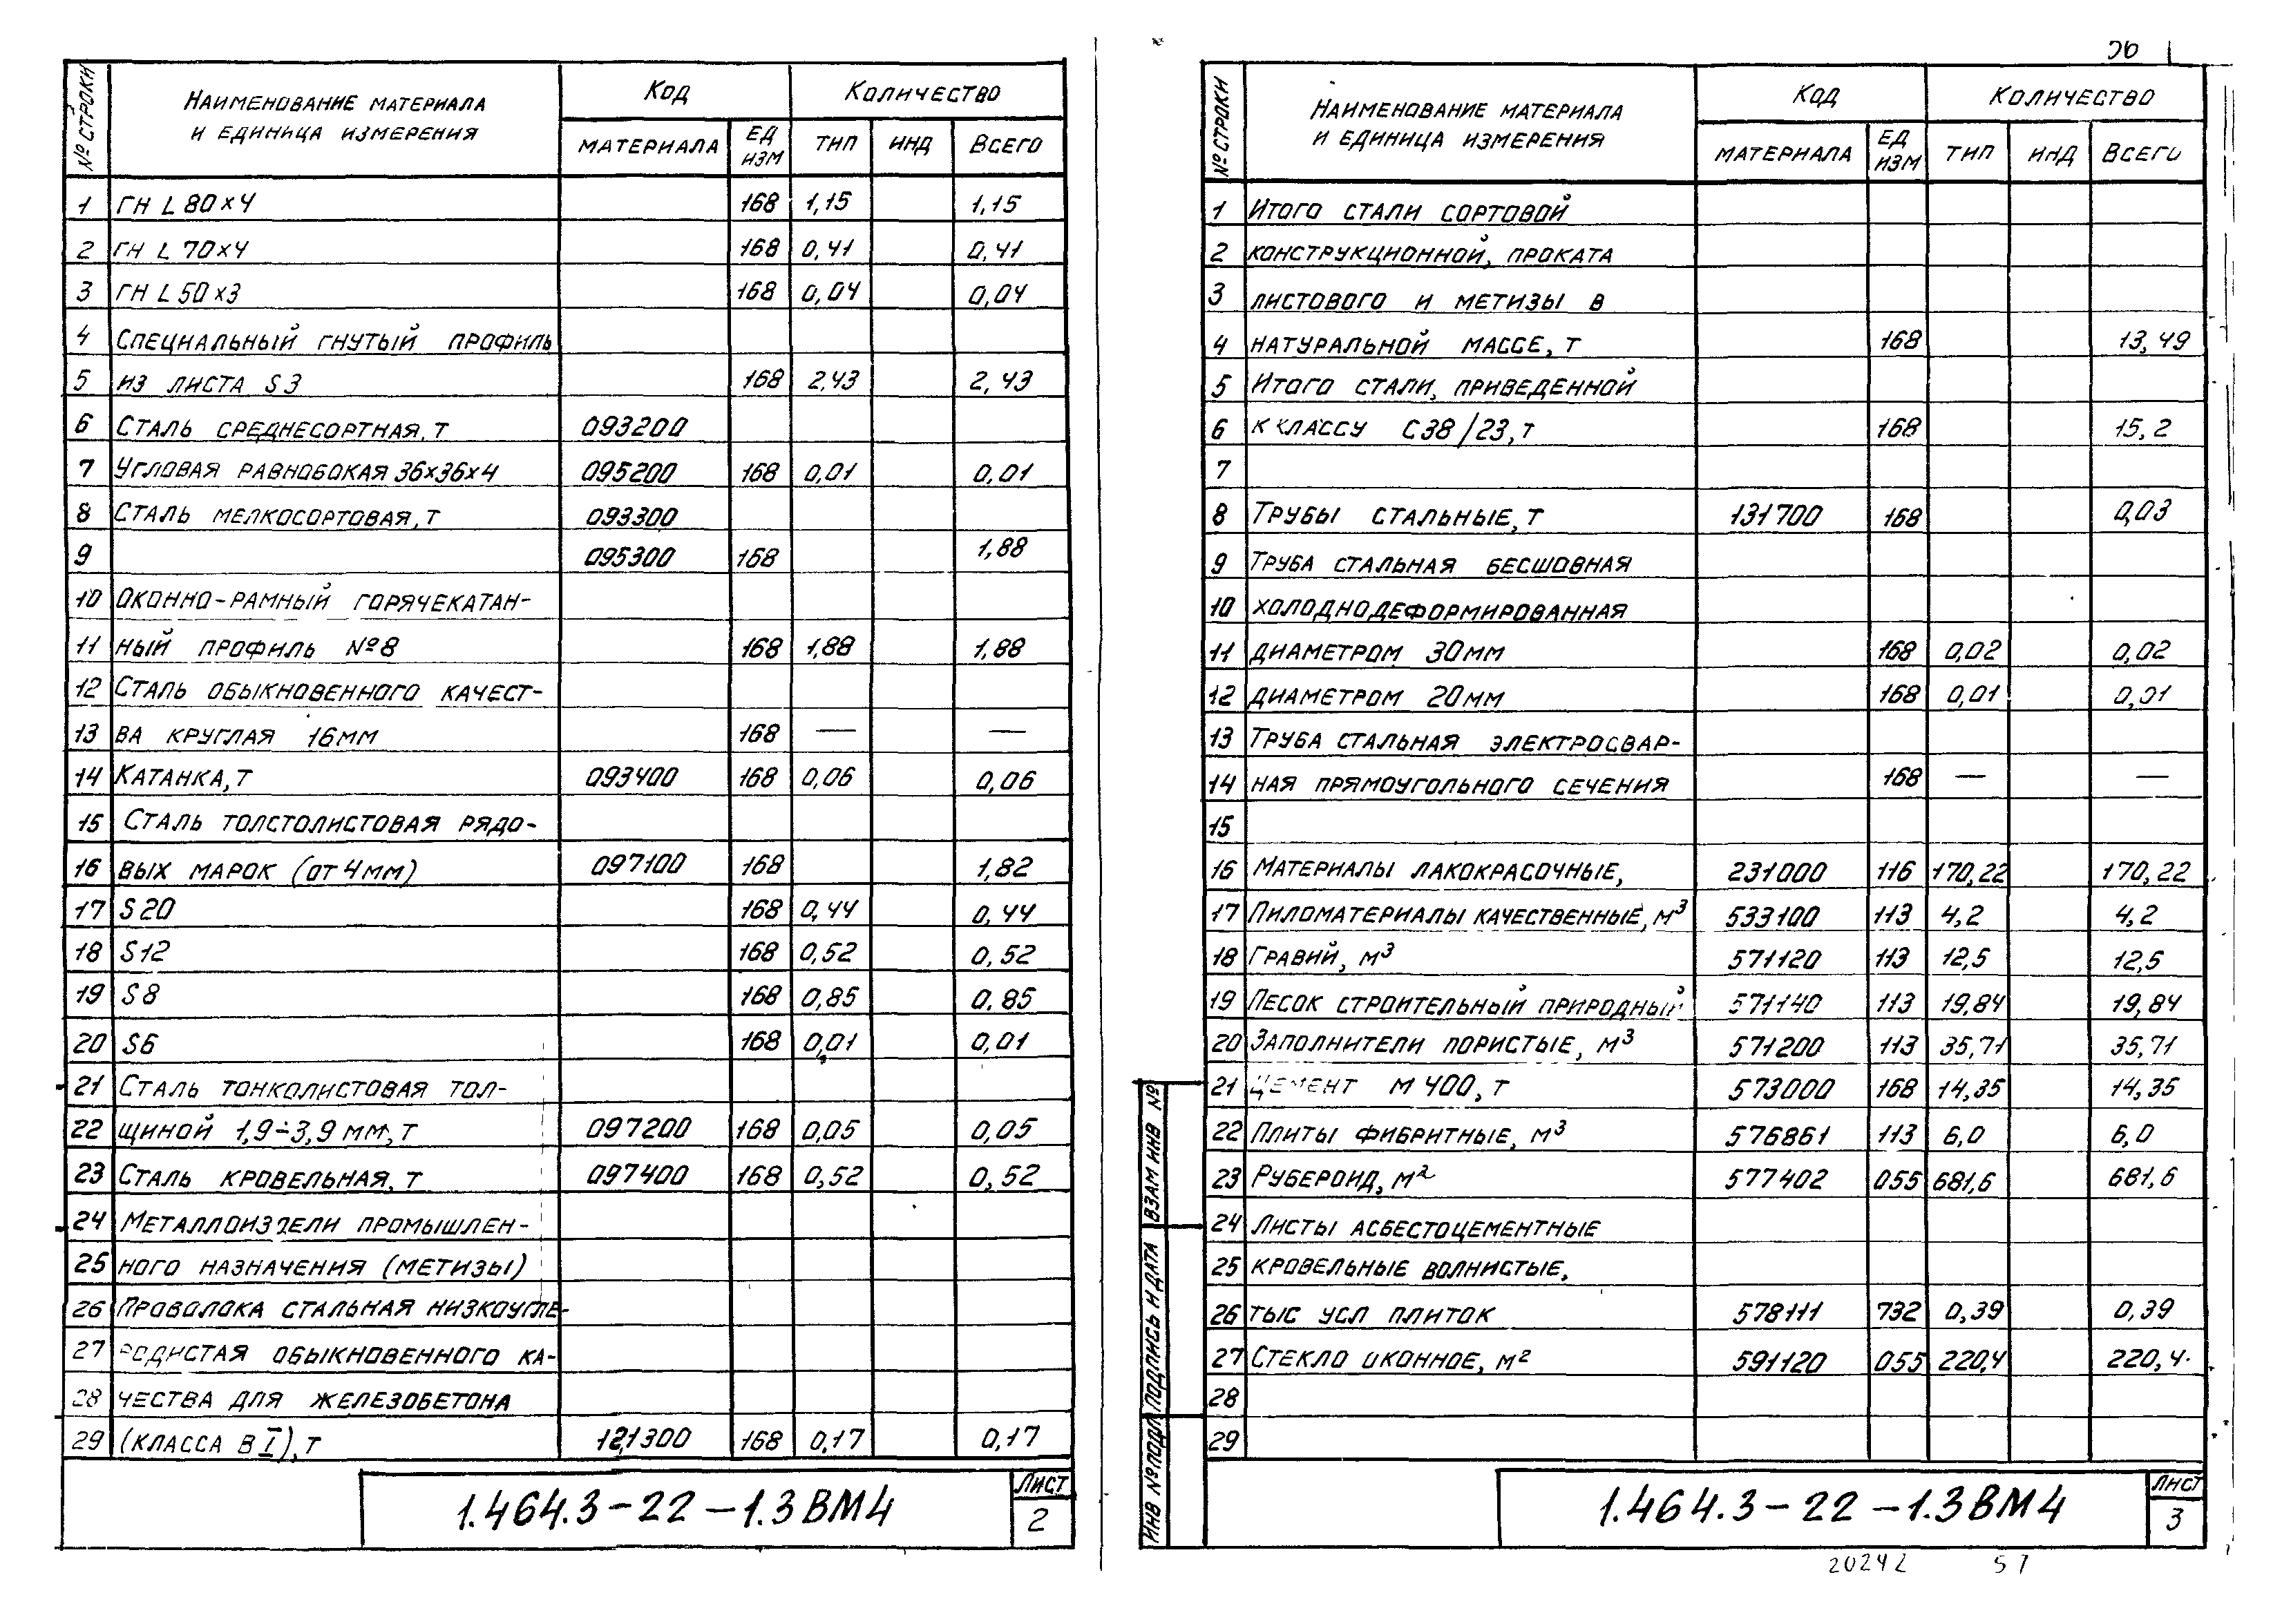 № СТРОКИ | НАИМЕНОВАНИЕ МАТЕРИАЛА И ЕДИНИЦА ИЗМЕРЕНИЯ | КОД | КОЛИЧЕСТВО
МАТЕРИАЛА | ЕД ИЗМ | ТИП | ИНД | ВСЕГО
1 ГН L 80×4 168 1,15 1,15
2 ГН L 70×4 168 0,41 0,41
3 ГН L 50×3 168 0,04 0,04
4 СПЕЦИАЛЬНЫЙ ГНУТЫЙ ПРОФИЛЬ
5 ИЗ ЛИСТА S3 168 2,43 2,43
6 СТАЛЬ СРЕДНЕСОРТНАЯ, Т 093200
7 УГЛОВАЯ РАВНОБОКАЯ 36×36×4 095200 168 0,01 0,01
8 СТАЛЬ МЕЛКОСОРТОВАЯ, Т 093300
9 095300 168 1,88
10 ОКОННО-РАМНЫЙ ГОРЯЧЕКАТАН-
11 НЫЙ ПРОФИЛЬ №8 168 1,88 1,88
12 СТАЛЬ ОБЫКНОВЕННОГО КАЧЕСТ-
13 ВА КРУГЛАЯ 16ММ 168 — —
14 КАТАНКА, Т 093400 168 0,06 0,06
15 СТАЛЬ ТОЛСТОЛИСТОВАЯ РЯДО-
16 ВЫХ МАРОК (ОТ 4ММ) 097100 168 1,82
17 S20 168 0,44 0,44
18 S12 168 0,52 0,52
19 S8 168 0,85 0,85
20 S6 168 0,01 0,01
21 СТАЛЬ ТОНКОЛИСТОВАЯ ТОЛ-
22 ЩИНОЙ 1,9÷3,9 ММ, Т 097200 168 0,05 0,05
23 СТАЛЬ КРОВЕЛЬНАЯ, Т 097400 168 0,52 0,52
24 МЕТАЛЛОИЗДЕЛИ ПРОМЫШЛЕН-
25 НОГО НАЗНАЧЕНИЯ (МЕТИЗЫ)
26 ПРОВОЛОКА СТАЛЬНАЯ НИЗКОУГЛЕ-
27 РОДИСТАЯ ОБЫКНОВЕННОГО КА-
28 ЧЕСТВА ДЛЯ ЖЕЛЕЗОБЕТОНА
29 (КЛАССА В I), Т 121300 168 0,17 0,17
1.464.3-22-1.3 ВМ4
ЛИСТ
2
36
№ СТРОКИ | НАИМЕНОВАНИЕ МАТЕРИАЛА И ЕДИНИЦА ИЗМЕРЕНИЯ | КОД | КОЛИЧЕСТВО
МАТЕРИАЛА | ЕД ИЗМ | ТИП | ИНД | ВСЕГО
1 ИТОГО СТАЛИ СОРТОВОЙ
2 КОНСТРУКЦИОННОЙ, ПРОКАТА
3 ЛИСТОВОГО И МЕТИЗЫ В
4 НАТУРАЛЬНОЙ МАССЕ, Т 168 13,49
5 ИТОГО СТАЛИ, ПРИВЕДЕННОЙ
6 К КЛАССУ С38/23, Т 168 15,2
7
8 ТРУБЫ СТАЛЬНЫЕ, Т 131700 168 0,03
9 ТРУБА СТАЛЬНАЯ БЕСШОВНАЯ
10 ХОЛОДНОДЕФОРМИРОВАННАЯ
11 ДИАМЕТРОМ 30ММ 168 0,02 0,02
12 ДИАМЕТРОМ 20ММ 168 0,01 0,01
13 ТРУБА СТАЛЬНАЯ ЭЛЕКТРОСВАР-
14 НАЯ ПРЯМОУГОЛЬНОГО СЕЧЕНИЯ 168 — —
15
16 МАТЕРИАЛЫ ЛАКОКРАСОЧНЫЕ, 231000 116 170,22 170,22
17 ПИЛОМАТЕРИАЛЫ КАЧЕСТВЕННЫЕ, М³ 533100 113 4,2 4,2
18 ГРАВИЙ, М³ 571120 113 12,5 12,5
19 ПЕСОК СТРОИТЕЛЬНЫЙ ПРИРОДНЫЙ 571140 113 19,84 19,84
20 ЗАПОЛНИТЕЛИ ПОРИСТЫЕ, М³ 571200 113 35,71 35,71
21 ЦЕМЕНТ М 400, Т 573000 168 14,35 14,35
22 ПЛИТЫ ФИБРИТНЫЕ, М³ 576861 113 6,0 6,0
23 РУБЕРОИД, М² 577402 055 681,6 681,6
24 ЛИСТЫ АСБЕСТОЦЕМЕНТНЫЕ
25 КРОВЕЛЬНЫЕ ВОЛНИСТЫЕ,
26 ТЫС УСЛ ПЛИТОК 578111 732 0,39 0,39
27 СТЕКЛО ОКОННОЕ, М² 591120 055 220,4 220,4
28
29
ИНВ № ПОДЛ ПОДПИСЬ И ДАТА ВЗАМ ИНВ №
1.464.3-22-1.3 ВМ4
ЛИСТ
3
20242 57